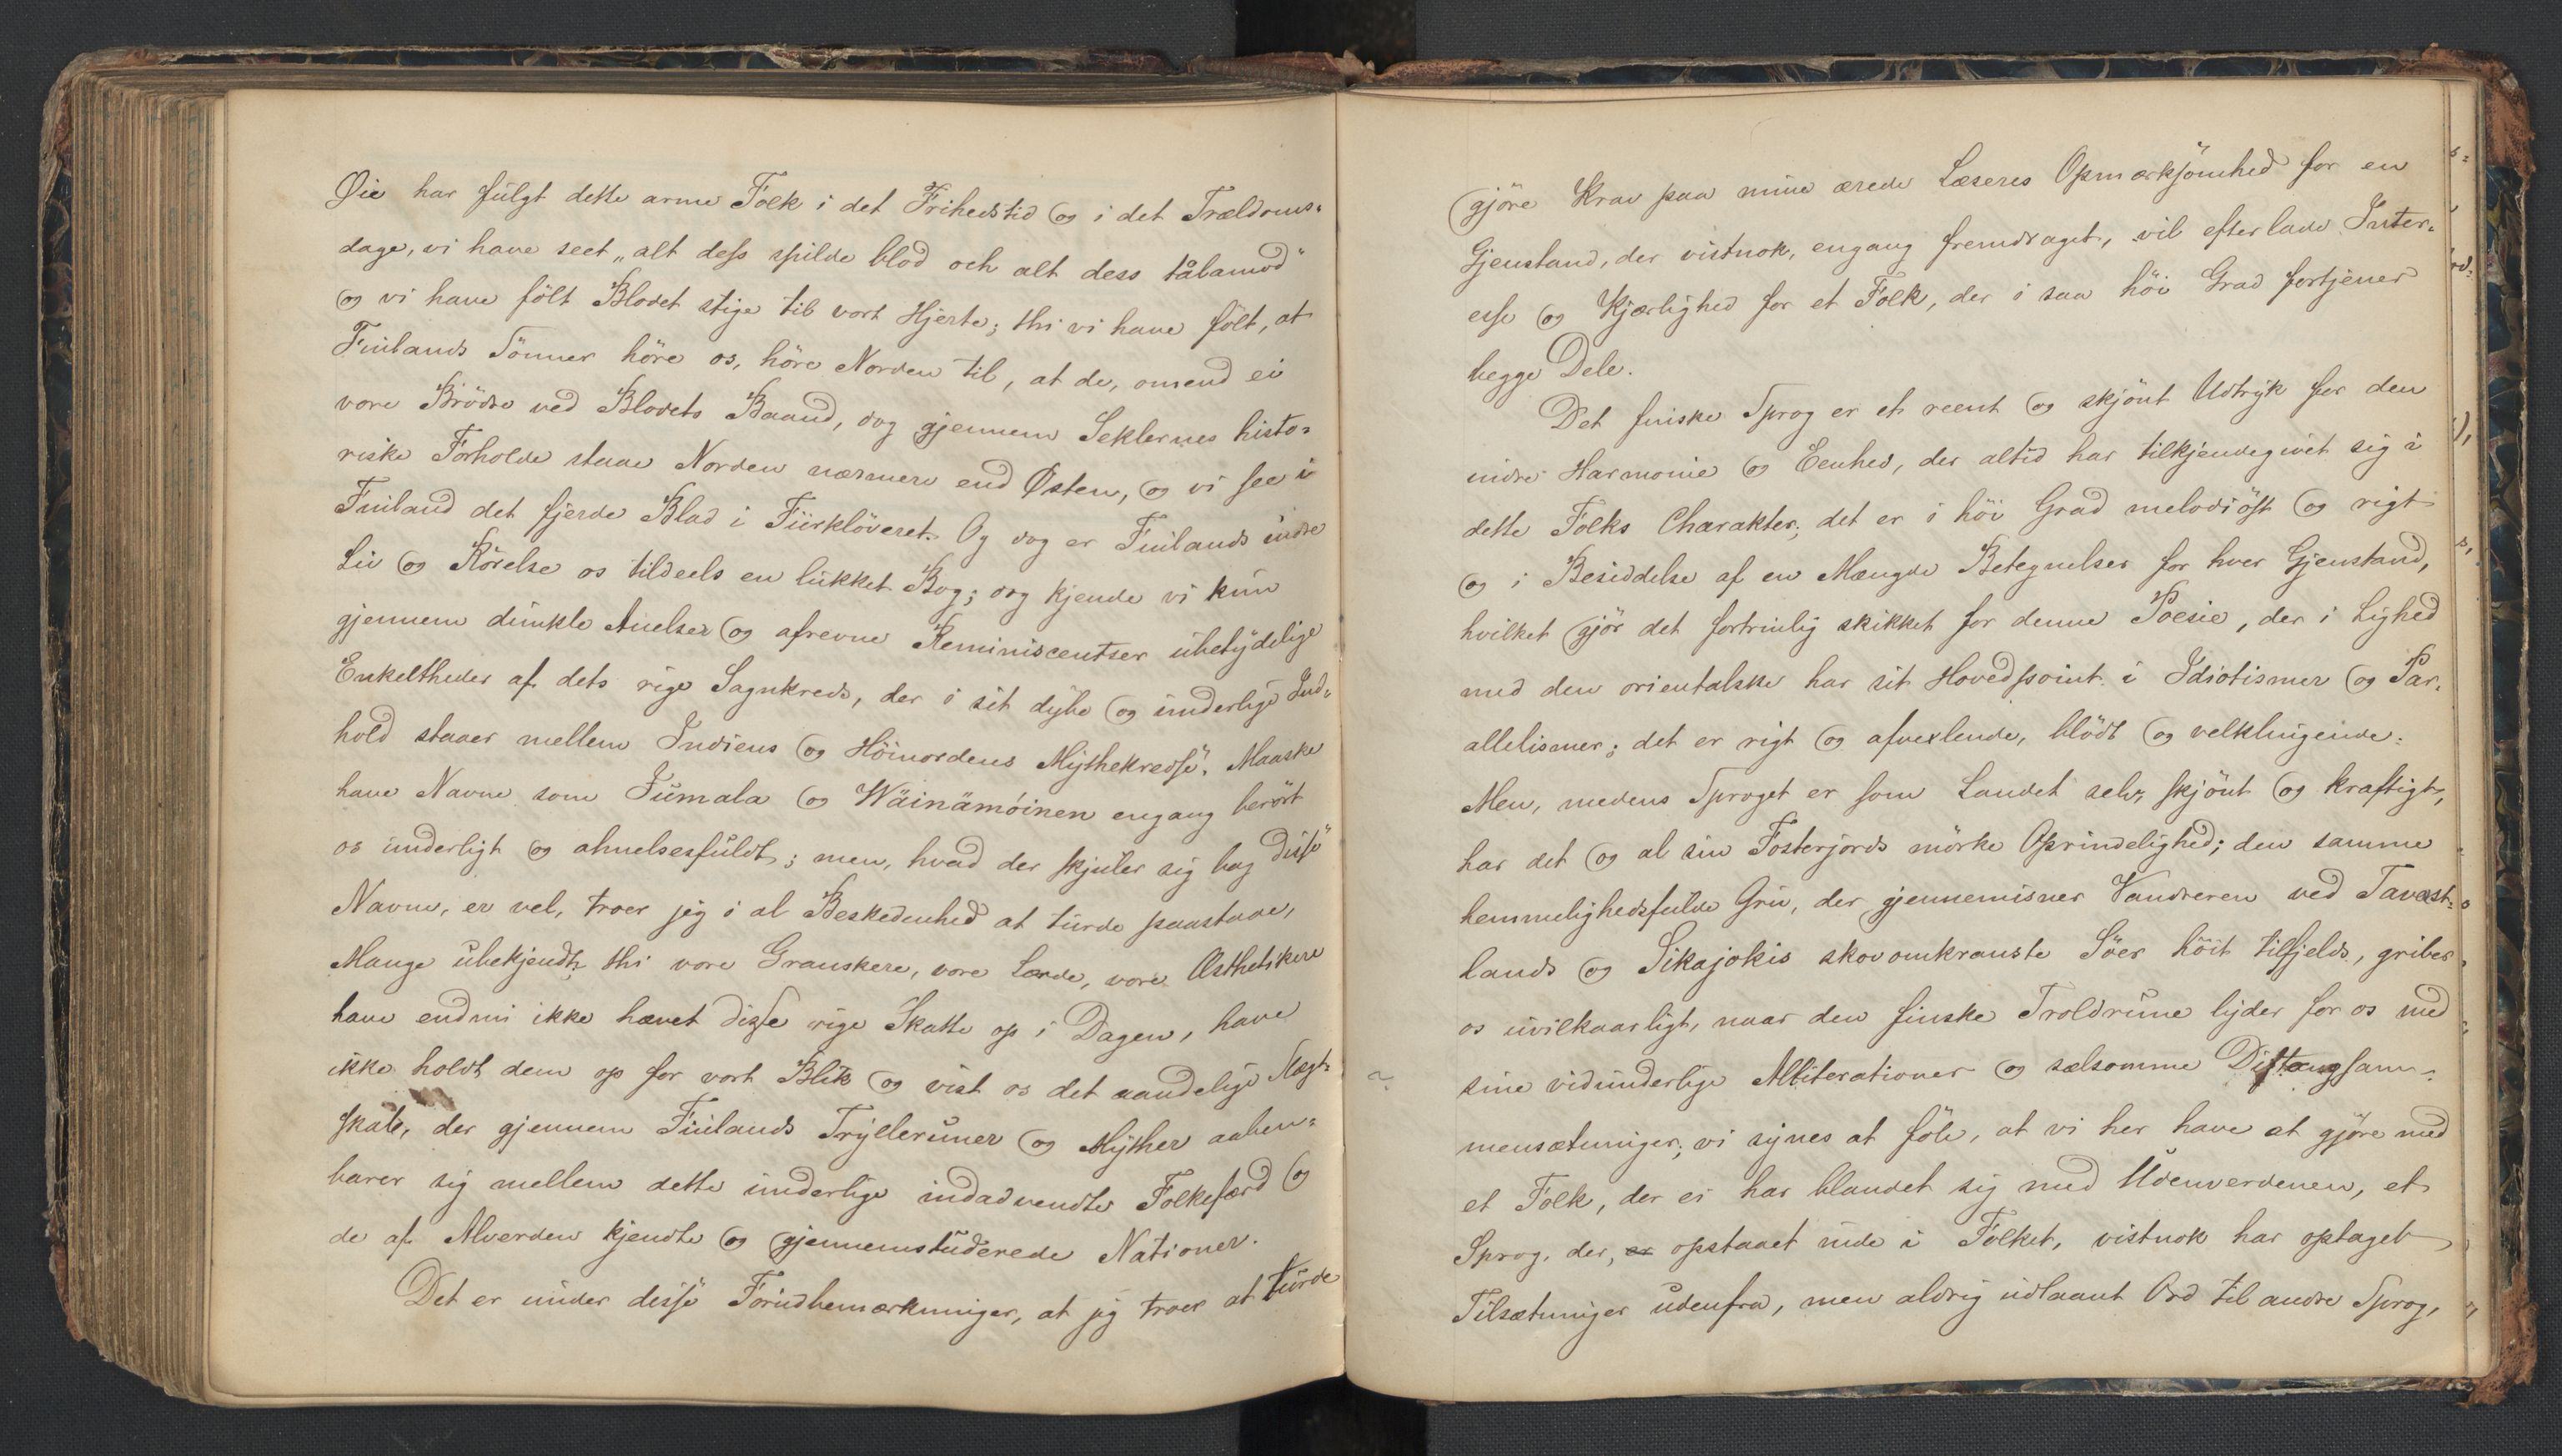 Øie har fulgt dette arme Folk i det Frihedstid og i det Trældoms-
dage, vi have seet „alt dess spilde blod och alt dess tålamod“
og vi have fölt Blodet stige til vort Hjerte; thi vi have fölt, at
Finlands Sönner höre os, höre Norden til, at de, omend ei
vore Brödre ved Blodets Baand, dog gjennem Seklernes histo-
riske Forholde staae Norden nærmere end Østen, og vi see i
Finland det fjerde Blad i Fiirklöveret. Og dog er Finlands indre
Liv og Rörelse os tildeels en lukket Bog; dog kjende vi kun
gjennem dunkle Anelser og afrevne Reminiscentser ubetydelige
Enkeltheder af dets rige Sagnkreds, der i sit dybe og underlige Ind-
hold staaer mellem Indiens og Höinordens Mythekredse. Maaske
have Navne som Jumala og Wäinämöinen engang berört
os underligt og ahnelsesfuldt; men, hvad der skjuler sig bag disse
Navne, er vel, troer jeg i al Beskedenhed at turde paastaae,
Mange ubekjendt, thi vore Granskere, vore Lærde, vore Æsthetikere
have endnu ikke hævet disse rige Skatte op i Dagen, have
ikke holdt dem op for vort Blik og vist os det aandelige Slægt-
skab, der gjennem Finlands Trylleruner og Myther aaben-
barer sig mellem dette underlige indadvendte Folkefærd og
de af Alverden kjendte og gjennemstuderede Nationer.
Det er under disse Forudbemærkninger, at jeg troer at turde
gjöre Krav paa mine ærede Læseres Opmærksomhed for en
Gjenstand, der vistnok, engang fremdraget, vil efterlade Inter-
esse og Kjærlighed for et Folk, der i saa höi Grad fortjener
begge Dele.
Det finske Sprog er et reent og skjönt Udtryk for den
indre Harmonie og Eenhed, der altid har tilkjendegivet sig i
dette Folks Charakter; det er i höi Grad melodiöst og rigt
og i Besiddelse af en Mængde Betegnelser for hver Gjenstand,
hvilket gjör det fortrinlig skikket for denne Poesie, der i Lighed
med den orientalske har sit Hovedpoint i Idiotismer og Par-
allelismer; det er rigt og afvexlende, blödt og velklingende.
Men, medens Sproget er som Landet selv, skjönt og kraftigt,
har det og al sin Fosterjords mörke Oprindelighed; den samme
hemmelighedsfulde Gru, der gjennemisner Vandreren ved Tavast-
lands og Sikajokis skovomkranste Söer höit tilfjelds, griber
os uvilkaarligt, naar den finske Troldrune lyder for os med
sine vidunderlige Alliterationer og sælsomme Diftongsam-
mensætninger; vi synes at föle, at vi her have at gjöre med
et Folk, der ei har blandet sig med Udenverdenen, et
Sprog, der, er opstaaet inde i Folket, vistnok har optaget
Tilsætninger udenfra, men aldrig udlaant Ord til andre Sprog,